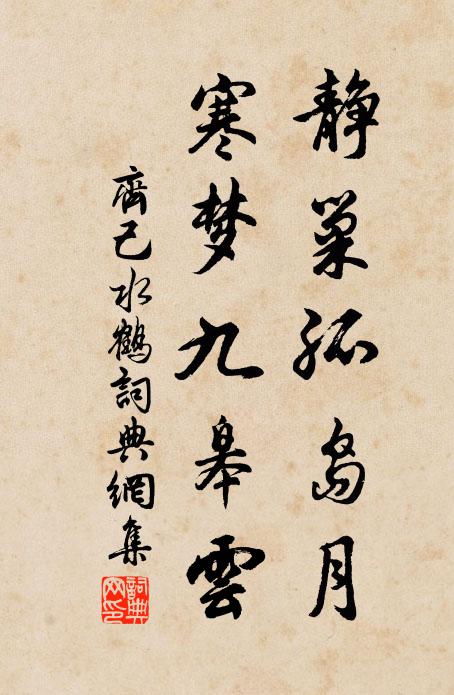 静巢孤岛月
寒梦九皋雲
齊己水鶴詞典網集
詞典網印